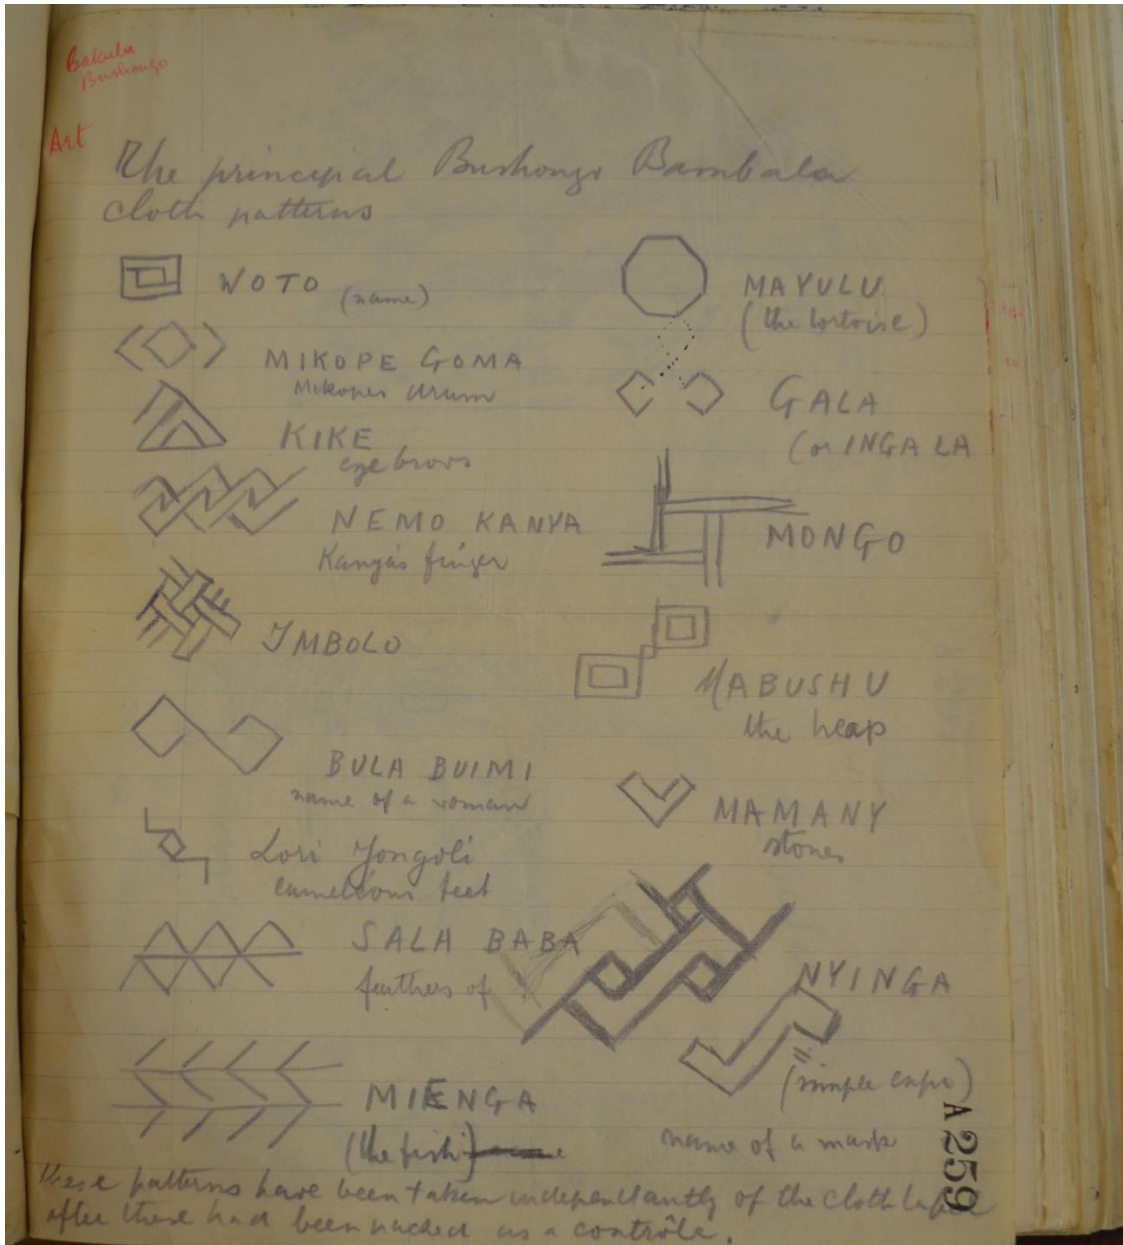 Bakuba
Bushongo
Art
The principal Bushongo Bambala
cloth patterns
WOTO (name)
MIKOPE GOMA
Mikopes drum
KIKE
eyebrows
NEMO KANYA
Kanya's finger
IMBOLO
BULA BUIMI
name of a woman
Lori Yongoli
cameleons feet
SALA BABA
feathers of
MIENGA
(the fish)
MAYULU
(the tortoise)
GALA
(or INGALA
MONGO
MABUSHU
the heap
MAMANY
stones
NYINGA
(simple
name of a mask
A 259
These patterns have been taken independantly of the cloth
after these had been packed as a contrôle.